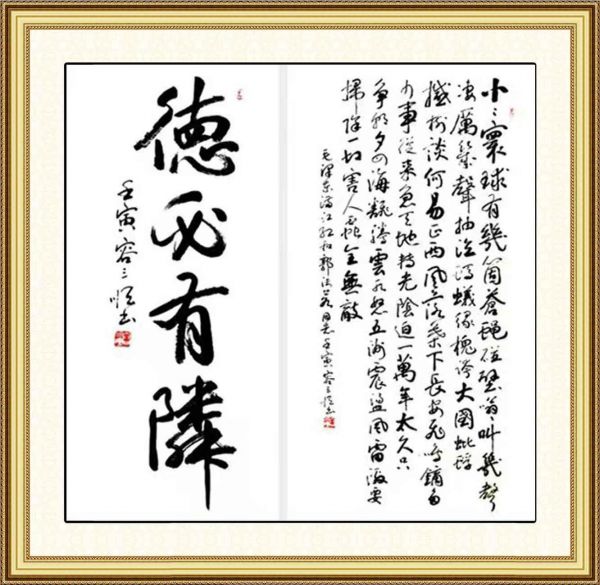 小〻寰球有幾箇蒼蠅碰壁嗡叫幾聲
凄厲幾聲抽泣螞蟻緣槐誇大國蚍蜉
撼樹談何易正西風落葉下長安飛鳴鏑多
少事從来急天地轉光陰迫一萬年太久只
争朝夕四海翻騰雲水怒五洲震盪風雷激要
掃除一切害人虫全無敵
毛澤东满江红和郭沫若同志壬寅容三书
德必有隣
壬寅容三书